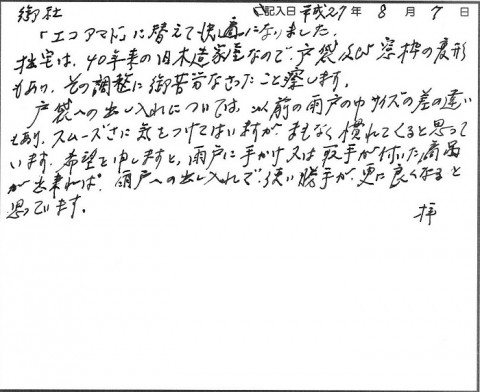 御社 ご記入日 平成27年 8月 7日
「エコアマド」に替えて快適になりました。
拙宅は、40年来の旧木造家屋なので、戸袋及び窓枠の変形
もあり、その調整に御苦労なさったこと察します。
戸袋への出し入れについては、以前の雨戸の巾サイズの差の違い
もあり、スムーズさに気をつけてはいますが、まもなく慣れてくると思って
います。希望を申しますと、雨戸に手かけ又は取手が付いた商品
が出来れば、雨戸への出し入れで、使い勝手が、更に良くなると
思っています。
拝